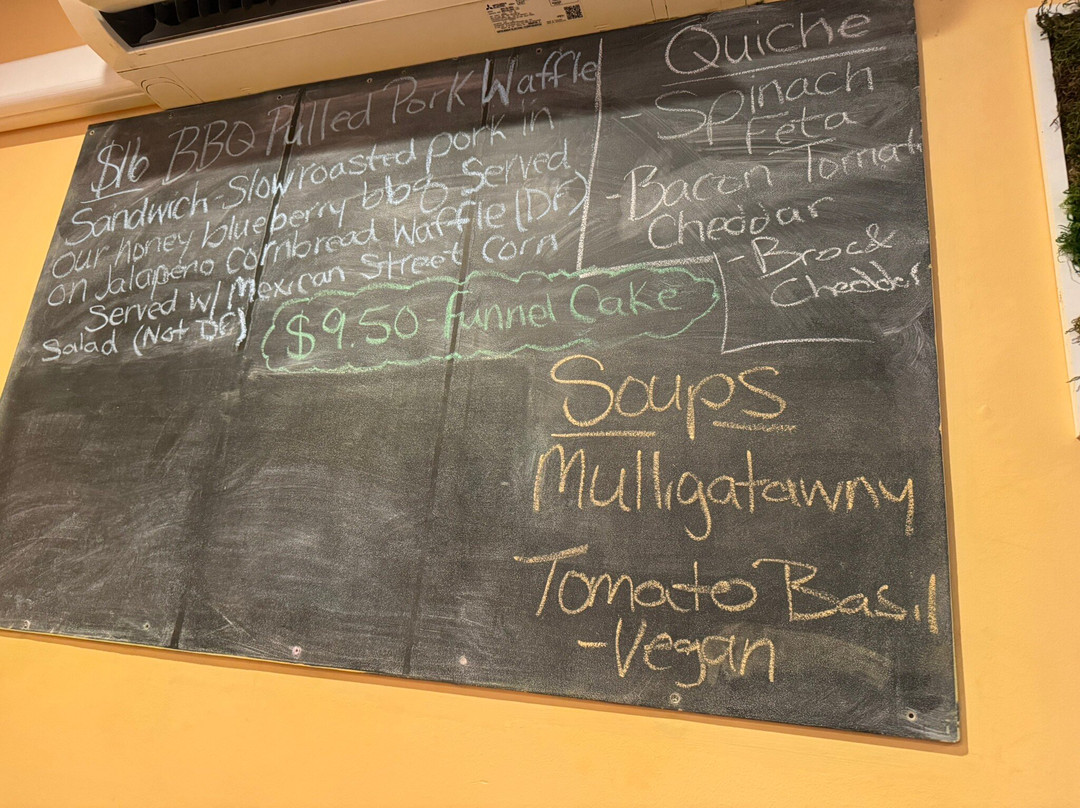 $16 BBQ Pulled Pork Waffle
Sandwich - Slow roasted pork in
our honey blueberry bbq Served
on Jalapeño Cornbread Waffle (DF)
Served w/ Mexican Street Corn
Salad (Not DF)
$9.50 - Funnel Cake
Quiche
- Spinach
Feta
- Bacon Tomat
Cheddar
- Broc &
Cheddar
Soups
Mulligatawny
Tomato Basil
- Vegan